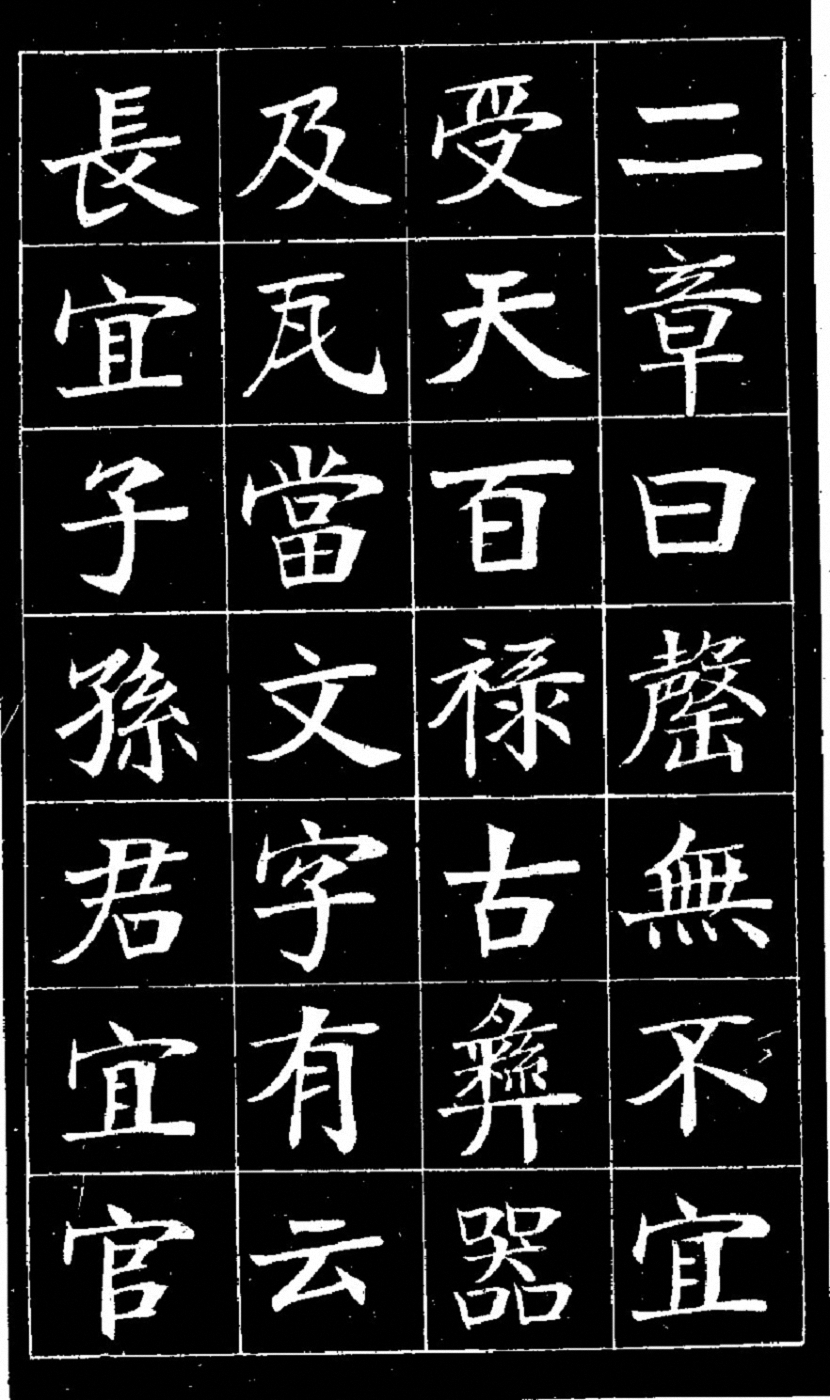 二章曰罄無不宜
受天百禄古彝器
及瓦當文字有云
長宜子孫君宜官